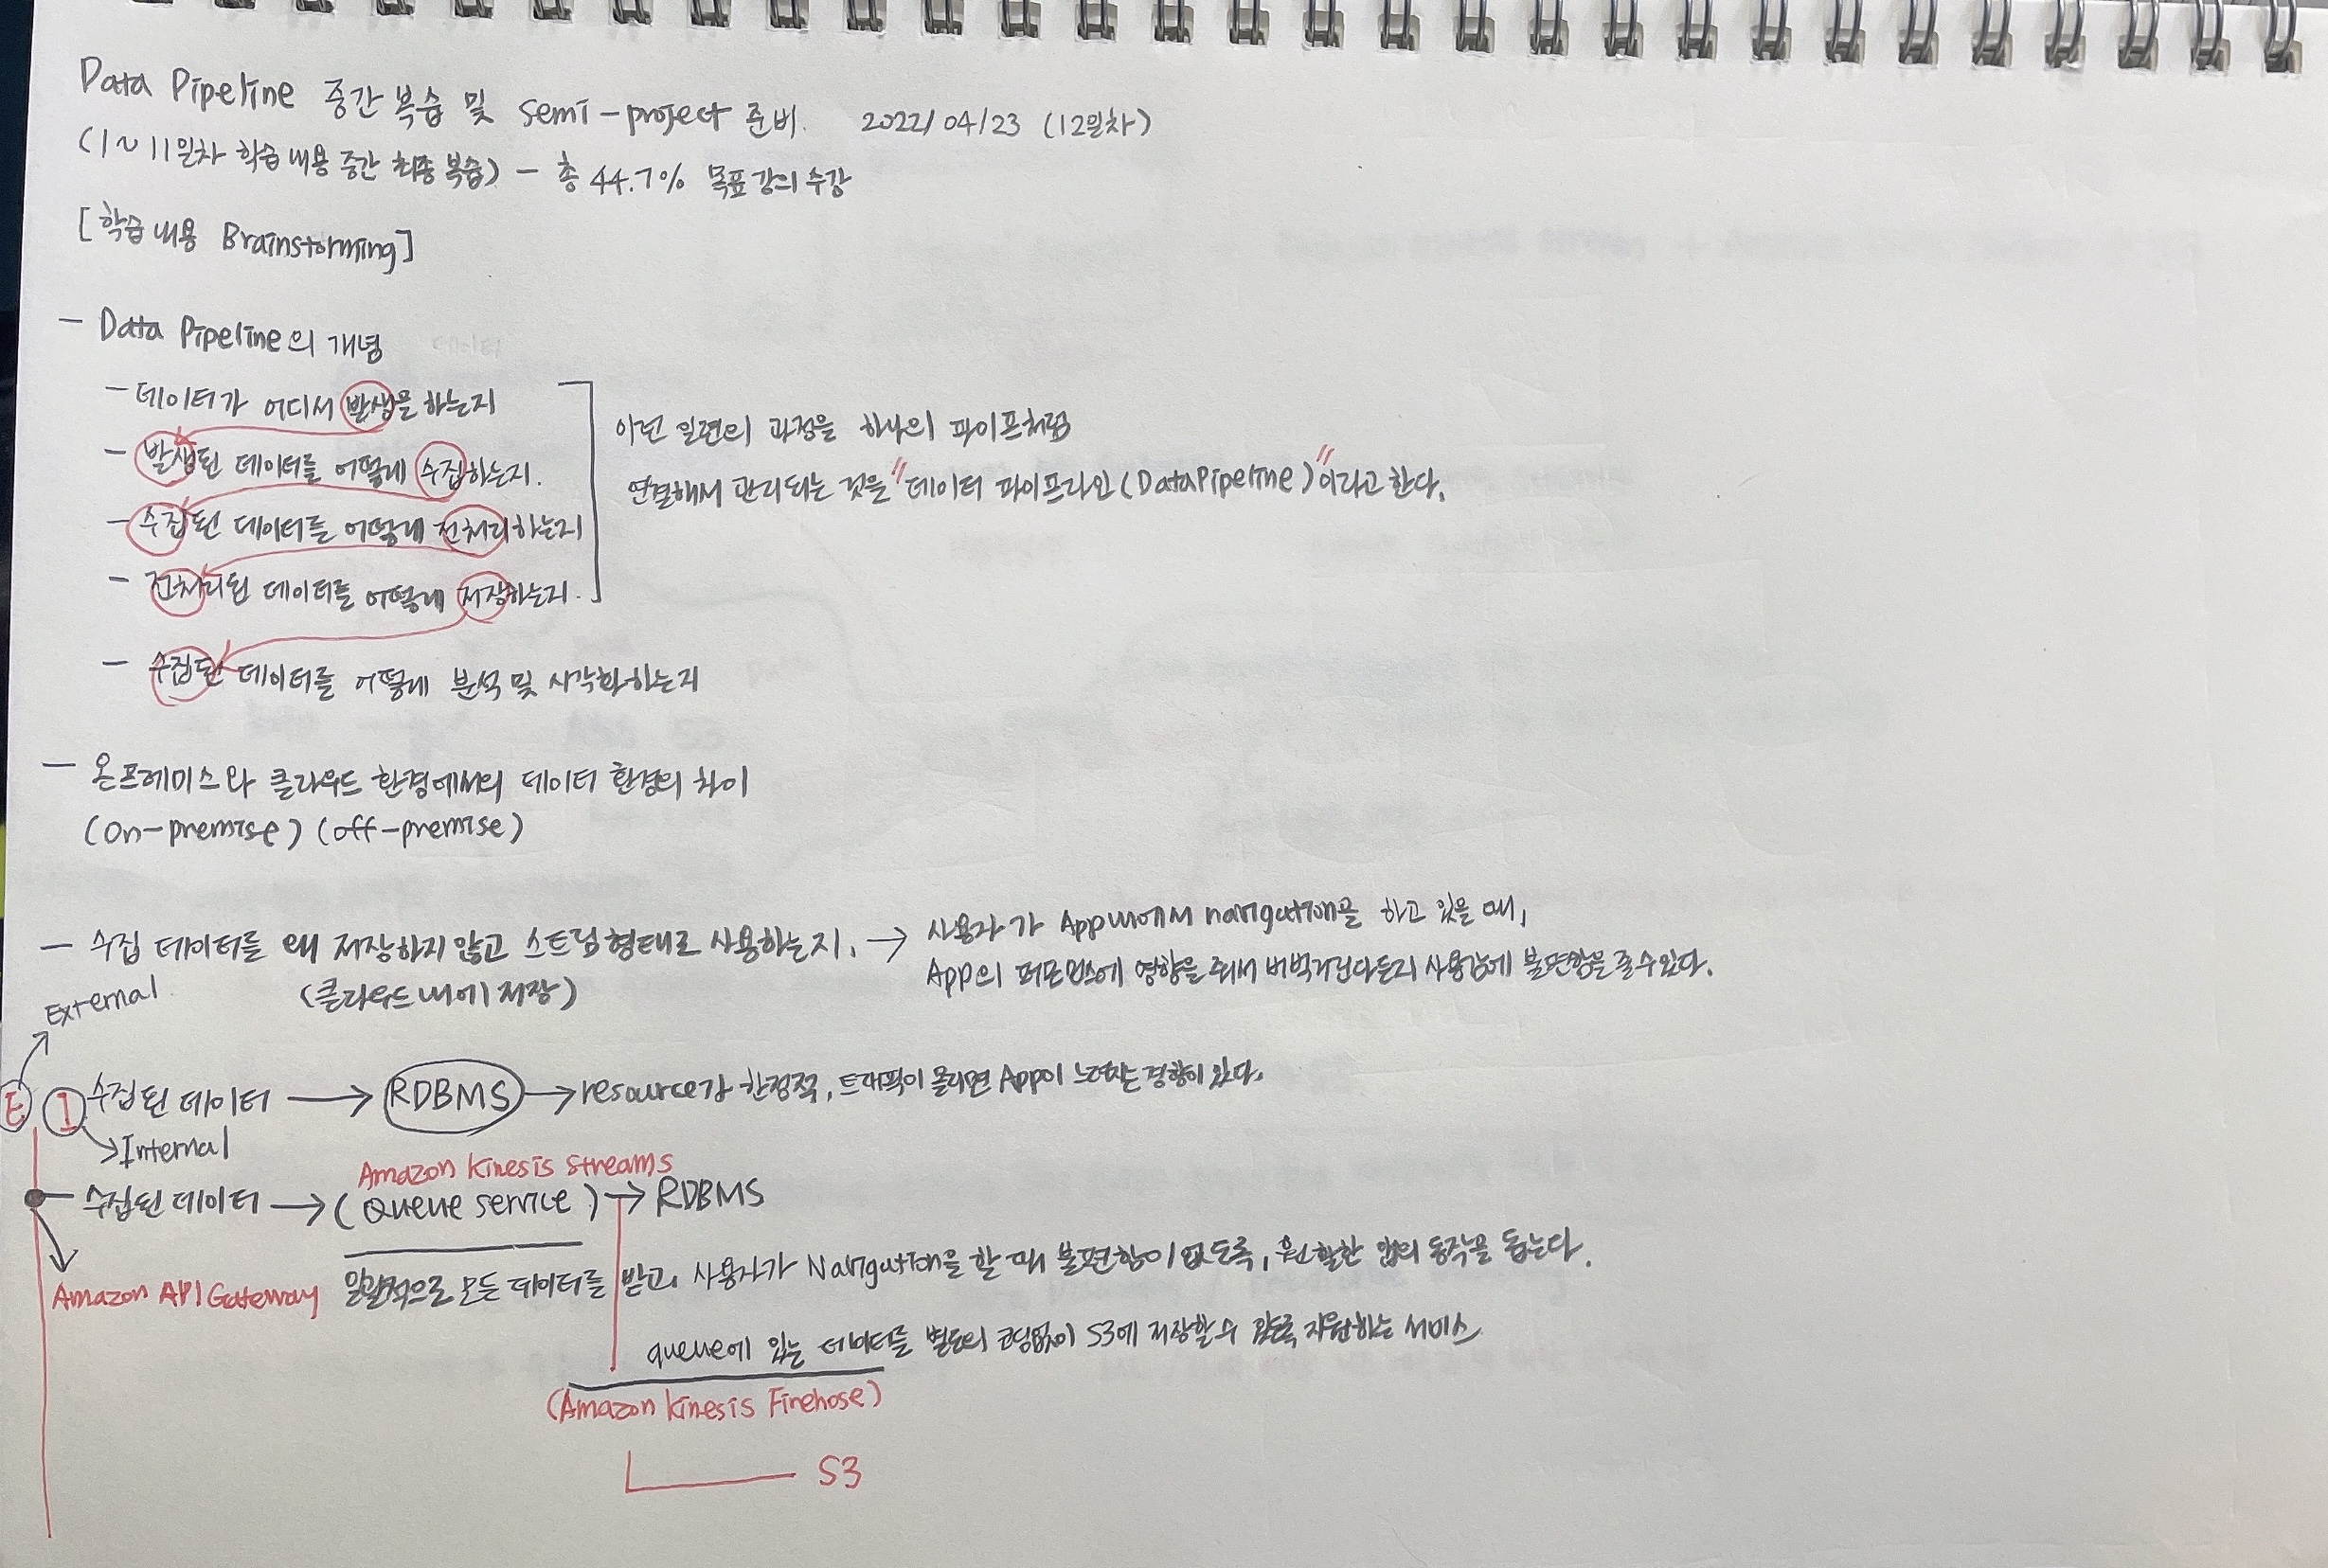 Data Pipeline 중간 복습 및 semi-project 준비. 2022/04/23 (12일차)
(1~11일차 학습 내용 중간 최종 복습) - 총 44.7% 목표 강의 수강
[학습 내용 Brainstorming]
- Data Pipeline의 개념
- 데이터가 어디서 발생을 하는지
- 발생된 데이터를 어떻게 수집하는지.
- 수집된 데이터를 어떻게 전처리하는지
- 전처리된 데이터를 어떻게 저장하는지.
- 수집된 데이터를 어떻게 분석 및 시각화하는지
이런 일련의 과정을 하나의 파이프처럼
연결해서 관리되는 것을 "데이터 파이프라인(DataPipeline)"이라고 한다.
- 온프레미스와 클라우드 환경에서의 데이터 환경의 차이
(on-premise) (off-premise)
- 수집 데이터를 왜 저장하지 않고 스트림형태로 사용하는지. → 사용자가 App내에서 navigation을 하고 있을 때,
(클라우드 내에 저장)
App의 퍼포먼스에 영향을 줘서 버벅거린다든지 사용감에 불편함을 줄 수 있다.
External
E I 수집된 데이터 → RDBMS → resource가 한정적, 트래픽이 몰리면 App이 느려지는 경향이 있다.
→ Internal
Amazon Kinesis Streams
수집된 데이터 → (Queue service) → RDBMS
Amazon API Gateway 일괄적으로 모든 데이터를 받고, 사용자가 Navigation을 할 때 불편함이 없도록, 원활한 앱의 동작을 돕는다.
queue에 있는 데이터를 별도의 코딩없이 S3에 저장할 수 있도록 지원하는 서비스
(Amazon Kinesis Firehose)
S3